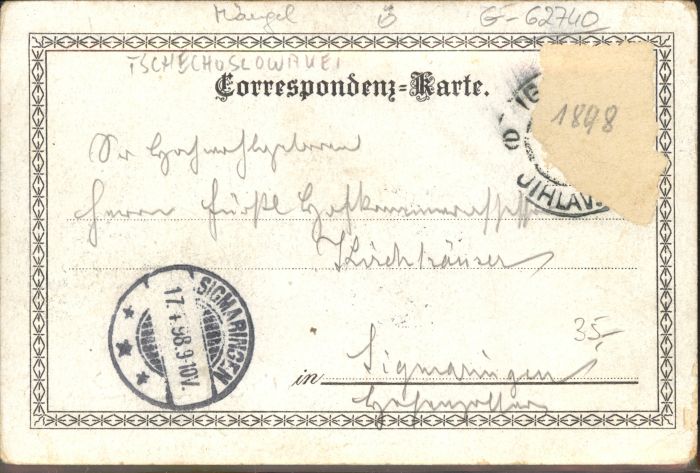 Mängel B G-62740
TSCHECHOSLOWAKEI
Correspondenz-Karte.
IG
1898
JIHLAV
Sr Hochwohlgeboren
Herrn Fürstl Hofkammerassessor
Kirchhäuser
SIGMARINGEN
17. 98.9-10V.
35,-
in Sigmaringen
Hohenzollern